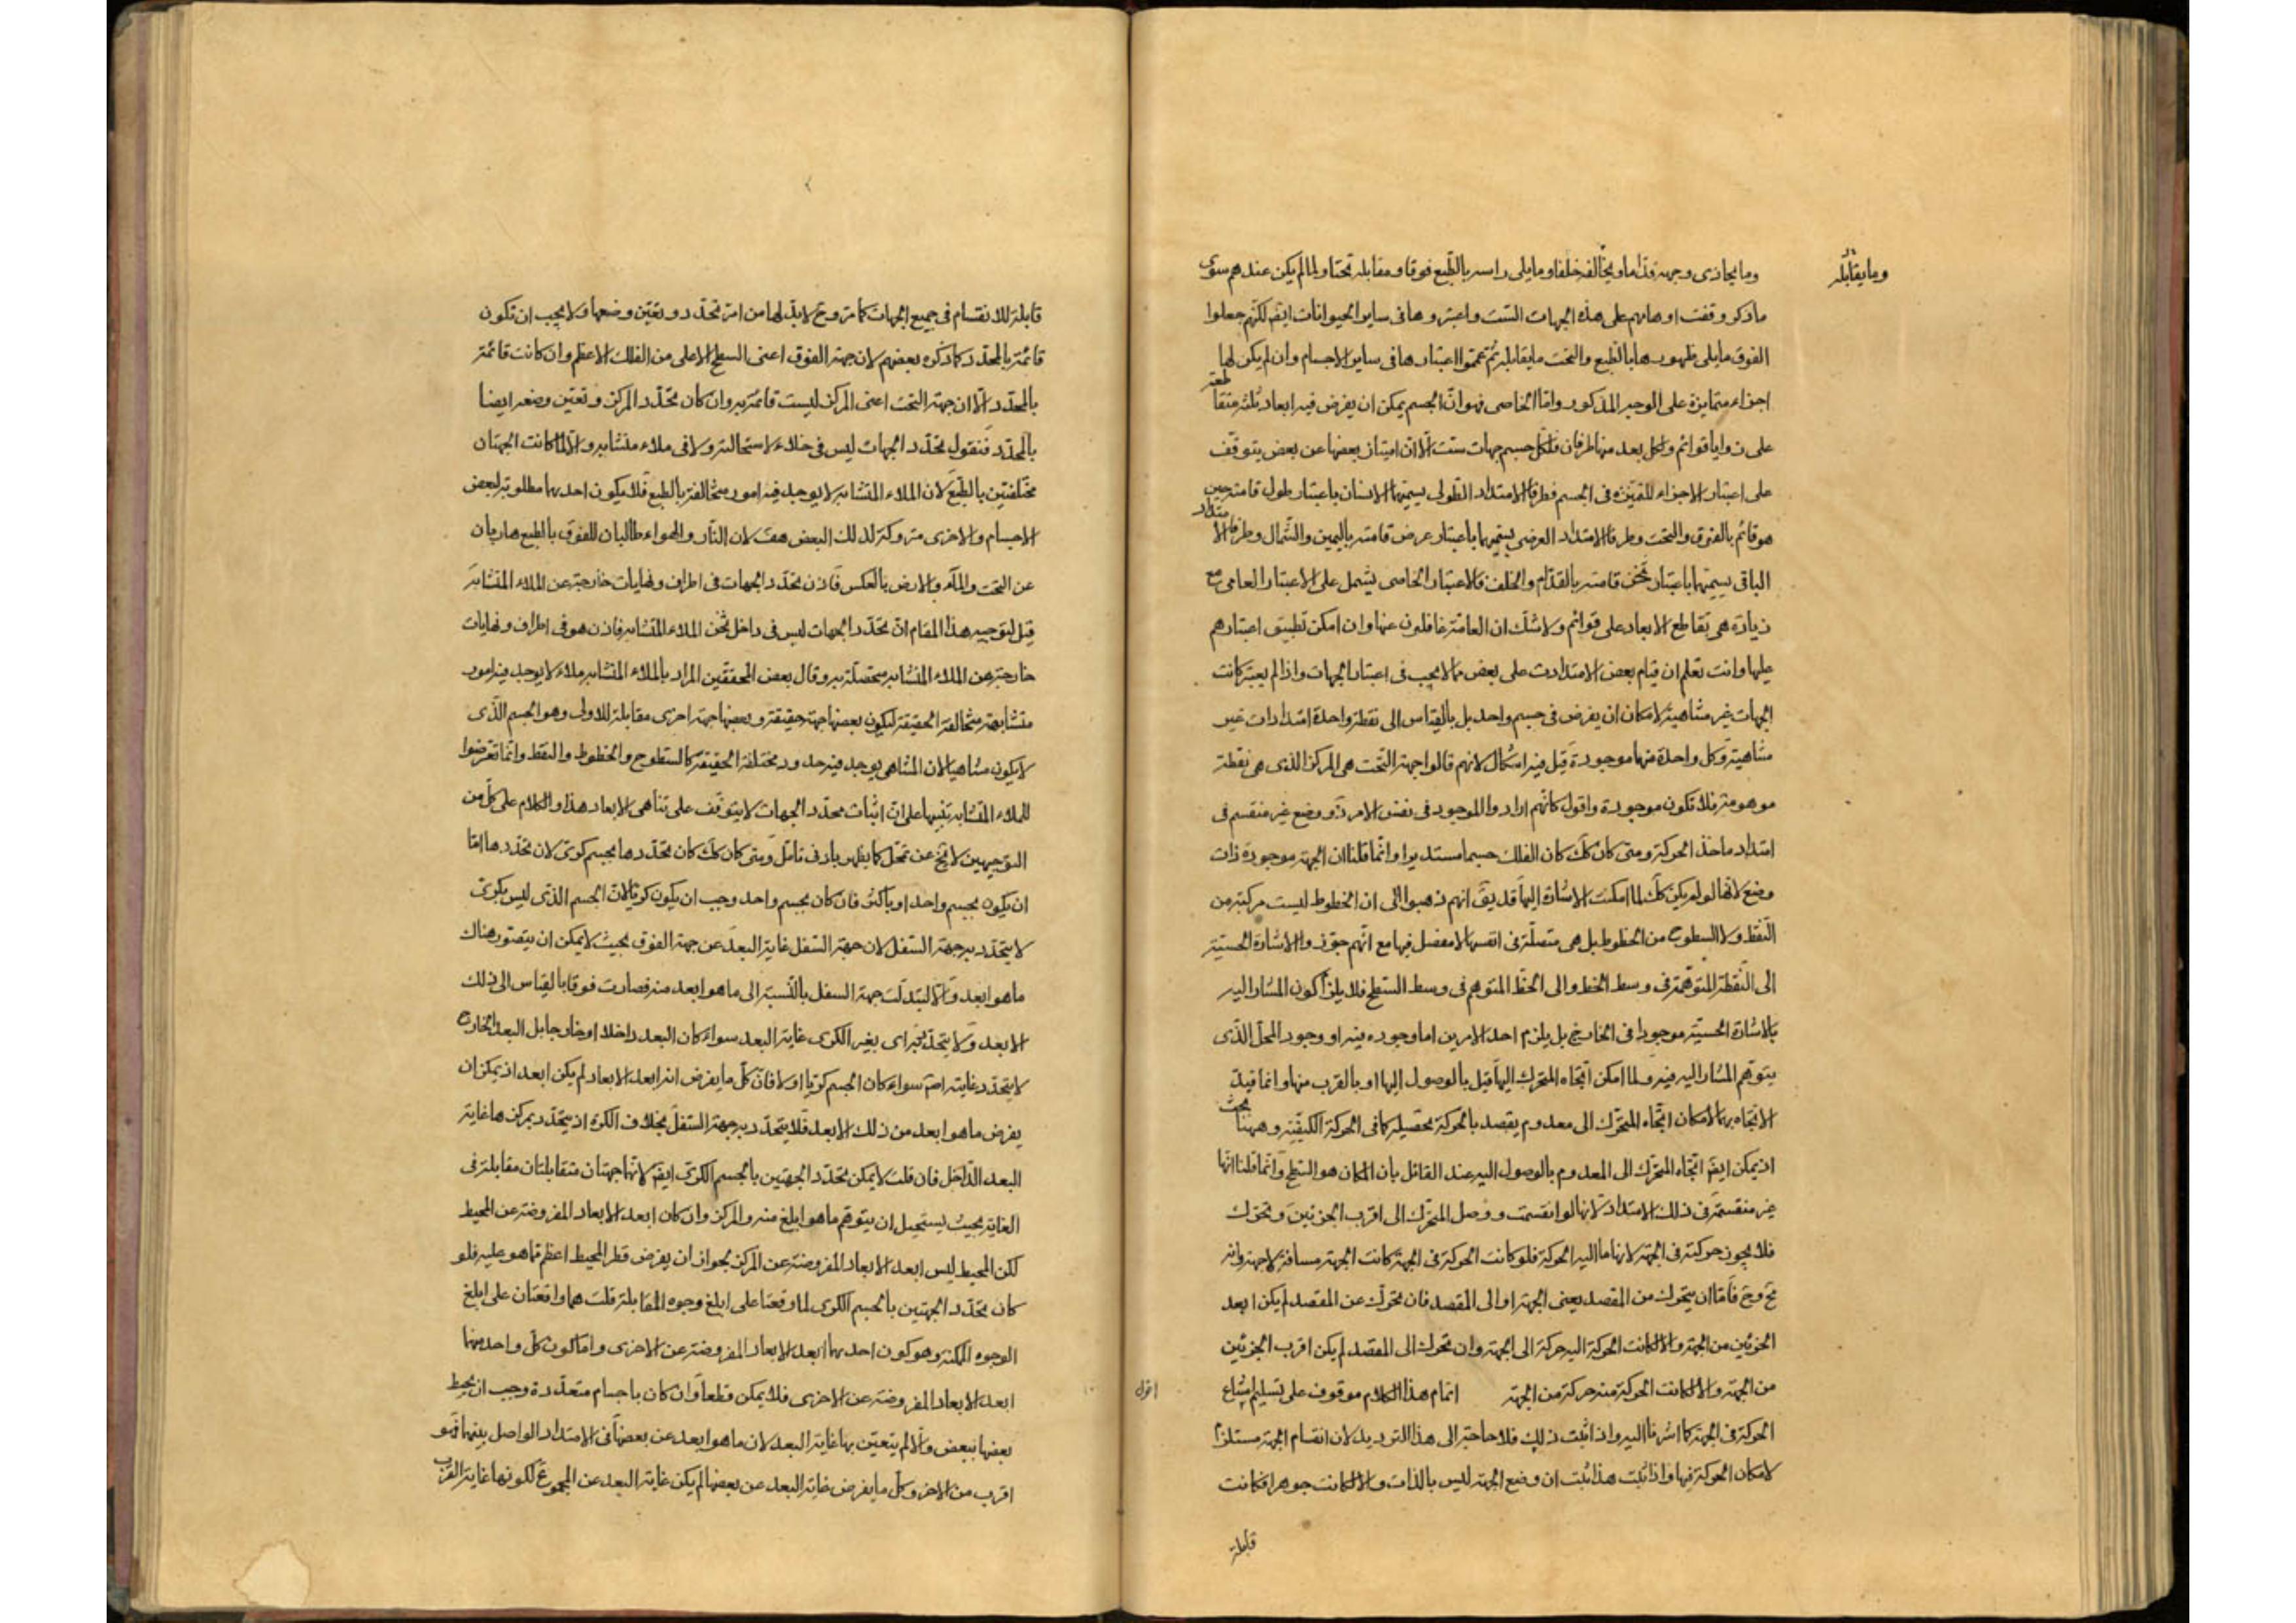 وما يقابله
وما يحاذي وجهه قداما وما يخالفه خلفا وما يلي راسه بالطبع فوقا ومقابله تحتا ولما لم يكن عندهم سوى
ما ذكر وقفت اوهامهم على هذه الجهات الست واعتبروها في ساير الحيوانات ايضم لكنهم جعلوا
الفوق ما يلي ظهورها بالطبع والتحت ما يقابله ثم عمموا اعتبارها في ساير الاجسام وان لم يكن لها
اجزاء متمايزة على الوجه المذكور واما الخاصي فهو ان الجسم يمكن ان يفرض فيه ابعاد ثلثه متقاطعة
على زوايا قوائم ولكل بعد منها طرفان فلكل جسم جهات ست الا ان امتياز بعضها عن بعض يتوقف
على اعتبار الاجزاء المتميزه في الجسم فطرفا الامتداد الطولي يسميهما الانسان باعتبار طول قامته حين
هو قائم بالفوق والتحت وطرفا الامتداد العرضي يسميهما باعتبار عرض قامته باليمين والشمال وطرفا الامتداد
الباقي يسميهما باعتبار ثخن قامته بالقدام والخلف فالاعتبار الخاصي يشمل على الاعتبار العامي مع
زيادة هي تقاطع الابعاد على قوائم ولا شك ان العامة غافلون عنها وان امكن تطبيق اعتبارهم
عليها وانت تعلم ان قيام بعض الامتدادات على بعض مما لا يجب في اعتبار الجهات واذا لم يعتبر كانت
الجهات غير متناهية لامكان ان يفرض في جسم واحد بل بالقياس الى نقطة واحدة امتدادات غير
متناهية وكل واحدة منها موجودة قيل فيه اشكال لانهم قالوا جهة التحت هي المركز الذي هي نقطة
موهومة فلا تكون موجودة واقول كانهم ارادوا الموجود في نفس الامر ذو وضع غير منقسم في
امتداد ماخذ الحركة ومتى كان كك كان الفلك جسما مستديرا وانما قلنا ان الجهة موجودة ذات
وضع لانها لو لم يكن كك لما امكنت الاشارة اليها قد يق انهم ذهبوا الى ان الخطوط ليست مركبة من
النقط ولا السطوح من الخطوط بل هي متصلة في انفسها لا مفصل فيها مع انهم جوزوا الاشارة الحسية
الى النقطة المتوهمة في وسط الخط والى الخط المتوهم في وسط السطح فلا يلزم كون المشار اليه
بالاشارة الحسية موجودا في الخارج بل يلزم احد الامرين اما وجوده فيه او وجود المحل الذي
يتوهم المشار اليه فيه ولما امكن اتجاه المتحرك اليها قيل بالوصول اليها او بالقرب منها وانما قيد
الاتجاه بهما لامكان اتجاه المتحرك الى معدوم يقصد بالحركة تحصيله كما في الحركة الكيفية وههنا بحث
اذ يمكن ايضم اتجاه المتحرك الى المعدوم بالوصول اليه عند القائل بان المكان هو السطح وانما قلنا انها
غير منقسمة في ذلك الامتداد لانها لو انقسمت ووصل المتحرك الى اقرب الجزئين وتحرك
فلا يجوز حركته في الجهة لانها ما اليه الحركة فلو كانت الحركة في الجهة كانت الجهة مسافة لا جهة وانه
مح وح فاما ان يتحرك من المقصد يعني الجهة او الى المقصد فان تحرك عن المقصد لم يكن ابعد
الجزئين من الجهة والا لكانت الحركة اليه حركة الى الجهة وان تحرك الى المقصد لم يكن اقرب الجزئين
من الجهة والا لكانت الحركة منه حركة من الجهة اتمام هذا الكلام موقوف على تسليم امتناع
اقول
الحركة في الجهة كما اشرنا اليه واذا ثبت ذلك فلا حاجة الى هذا الترديد لان انقسام الجهة مستلزم
لامكان الحركة فيها واذا ثبت هذا ثبت ان وضع الجهة ليس بالذات والا لكانت جوهرا فكانت
قابلة
قابلة للانقسام في جميع الجهات كما مر وح لا بد لها من امر تحدد ويعين وضعها ولا يجب ان تكون
قائمة بالمحدد كما ذكره بعضهم لان جهة الفوق اعني السطح الاعلى من الفلك الاعظم وان كانت قائمة
بالمحدد الا ان جهة التحت اعني المركز ليست قائمة به وان كان تحدد المركز وتعين وضعه ايضا
بالمحدد فنقول تحدد الجهات ليس في خلاء لاستحالته ولا في ملاء متشابه والا لما كانت الجهتان
مختلفتين بالطبع لان الملاء المتشابه لا يوجد فيه امور متخالفة بالطبع فلا يكون احدهما مطلوبة لبعض
الاجسام والاخرى متروكة لذلك البعض هف لان النار والهواء طالبان للفوق بالطبع هاربان
عن التحت والماء والارض بالعكس فاذن تحدد الجهات في اطراف ونهايات خارجة عن الملاء المتشابه
قيل لتوجيه هذا المقام ان تحدد الجهات ليس في داخل ثخن الملاء المتشابه فاذن هو في اطراف ونهايات
خارجة عن الملاء المتشابه متصلة به وقال بعض المحققين المراد بالملاء المتشابه ملاء لا يوجد فيه امور
متشابهة متخالفة الحقيقة ليكون بعضها جهة حقيقة وبعضها جهة اخرى مقابلة للاولى وهو الجسم الذي
لا يكون متناهيا لان المتناهي يوجد فيه حدود مختلفة الحقيقة كالسطوح والخطوط والنقط وانما تعرضوا
للملاء المتشابه تنبيها على ان اثبات محدد الجهات لا يتوقف على تناهي الابعاد هذا والكلام على كل من
التوجيهين لا يخ عن تمحل كما يظهر بادنى تامل ومتى كان كك كان تحددها بجسم كري لان تحددها اما
ان يكون بجسم واحد او باكثر فان كان بجسم واحد وجب ان يكون كريا لان الجسم الذي ليس بكري
لا يتحدد به جهة السفل لان جهة السفل غاية البعد عن جهة الفوق بحيث لا يمكن ان يتصور هناك
ما هو ابعد والا لتبدلت جهة السفل بالنسبة الى ما هو ابعد منه فصارت فوقا بالقياس الى ذلك
الابعد ولا يتحدد به اي بغير الكري غاية البعد سواء كان البعد داخلا او خارجا بل البعد الخارج
لا يتحدد غايته اصم سواء كان الجسم كريا او لا فان كل ما يفرض انه ابعد الابعاد لم يكن ابعد اذ يمكن ان
يفرض ما هو ابعد من ذلك الابعد فلا يتحدد به جهة السفل بخلاف الكرة اذ يتحدد بمركزها غاية
البعد الداخل فان قلت لا يمكن تحدد الجهتين بالجسم الكري ايضم لانهما جهتان متقابلتان مقابلة في
الغاية بحيث يستحيل ان يتوهم ما هو ابلغ منه والمركز وان كان ابعد الابعاد المفروضة عن المحيط
لكن المحيط ليس ابعد الابعاد المفروضة عن المركز لجواز ان يفرض قطر المحيط اعظم مما هو عليه فلو
كان تحدد الجهتين بالجسم الكري لما وقعتا على ابلغ وجوه المقابلة قلت هما واقعتان على ابلغ
الوجوه الممكنة وهو كون احدهما ابعد الابعاد المفروضة عن الاخرى واما كون كل واحد منهما
ابعد الابعاد المفروضة عن الاخرى فلا يمكن قطعا وان كان باجسام متعددة وجب ان يحيط
بعضها ببعض والا لم يتعين بها غاية البعد لان ما هو ابعد عن بعضها في الامتداد الواصل بينهما فهو
اقرب من الاخر وكل ما يفرض غاية البعد عن بعضها لم يكن غاية البعد عن المجموع لكونها غاية القرب